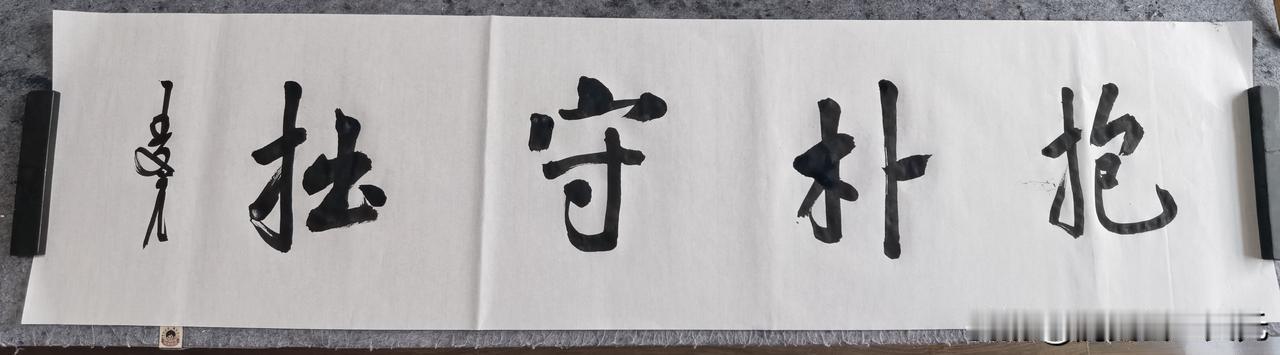 抱朴守拙